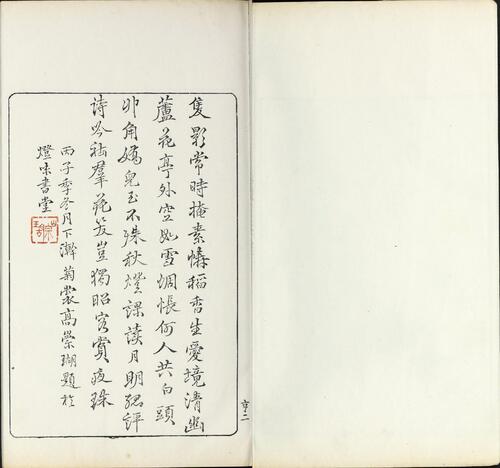 隻影常時掩素幬稻香生處境清幽
蘆花亭外空如雪惆悵何人共白頭
丱角嬌兒玉不殊秋燈課讀月明
評
詩吟社羣花笑豈獨昭容賞夜珠
丙子季冬月下澣菊裳高崇瑚題於
燈味書堂
亨二